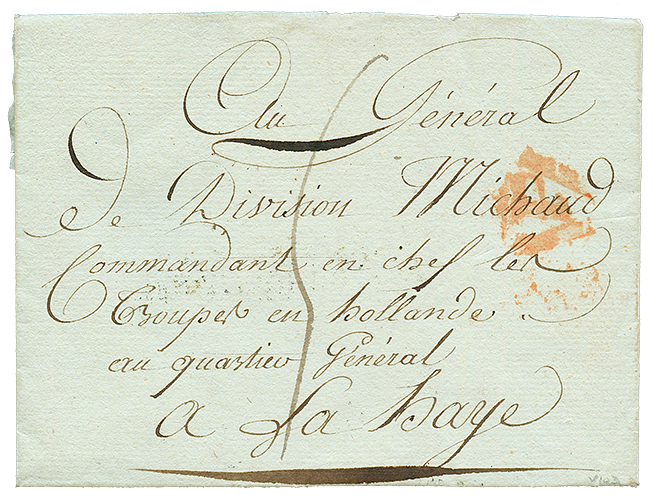 Au Général
De Division Michaud
Commandant en chef les
Troupes en hollande.
au quartier Général
a La haye